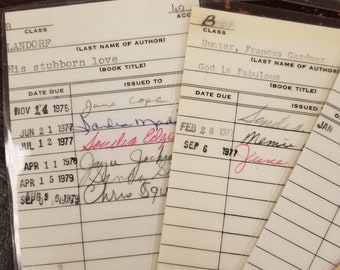 49
CLASS
ACC
LANDORF
(LAST NAME OF AUTHOR)
His stubborn love
(BOOK TITLE)
DATE DUE
ISSUED TO
NOV 14 1976
Jane Cope
JUN 21 1977
JUL 12 1977
Sandra
APR 11 1979
APR 15 1979
Sandy
1979
Chris
B
CLASS
Hunter, Frances Gardner
(LAST NAME OF AUTHOR)
God is Fabulous
(BOOK TITLE)
DATE DUE
ISSUED
FEB 28 197
Sandra
SEP 6 1977
June
DATE
JAN